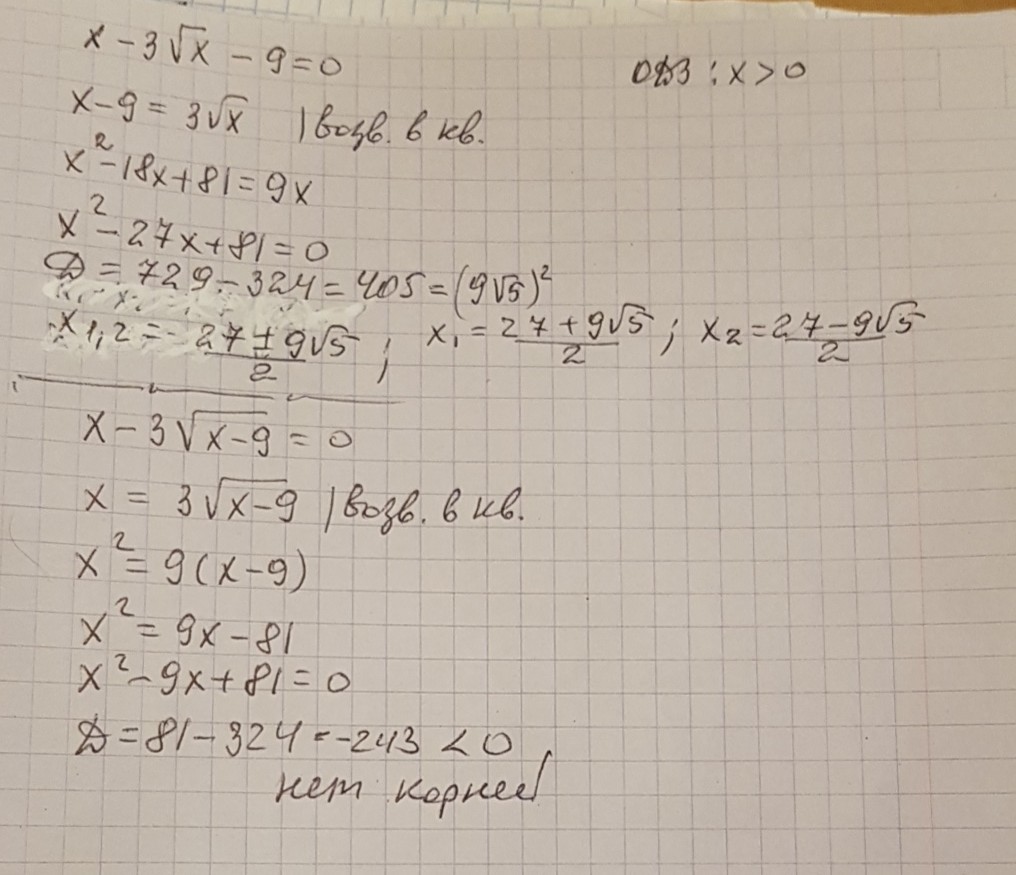 x - 3√x - 9 = 0 ОДЗ : x > 0
x - 9 = 3√x | возв. в кв.
x² - 18x + 81 = 9x
x² - 27x + 81 = 0
D = 729 - 324 = 405 = (9√5)²
x1,2 = 27 ± 9√5 / 2 ; x1 = 27 + 9√5 / 2 ; x2 = 27 - 9√5 / 2
x - 3√(x-9) = 0
x = 3√(x-9) | возв. в кв.
x² = 9(x-9)
x² = 9x - 81
x² - 9x + 81 = 0
D = 81 - 324 = -243 < 0
нет корней